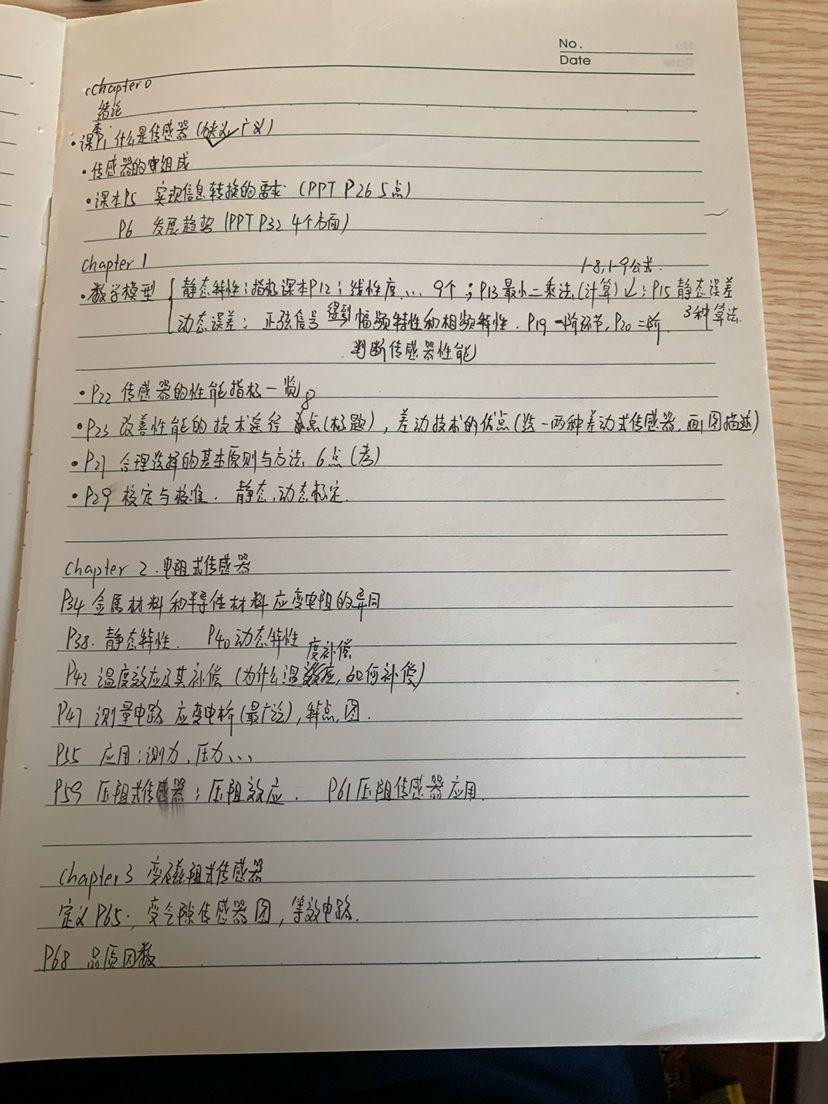 No.
Date
Chapter 0
绪论
· 课本P1 什么是传感器 (狭义, 广义)
· 传感器的组成
· 课本P5 实现信息转换的需求 (PPT P26 5点)
P6 发展趋势 (PPT P32 4个方面)
chapter 1
1-8, 1-9公式.
· 数学模型 { 静态特性: 指标 课本P12; 线性度... 9个; P13 最小二乘法, (计算) ; P15 静态误差
3种算法.
动态误差: 正弦信号 得到 幅频特性和相频特性. P19 一阶环节, P20 二阶
判断传感器性能
· P22 传感器的性能指标一览
· P23 改善性能的技术途径 8点(标题), 差动技术的优点(致一两种差动式传感器, 画图描述)
· P27 合理选择的基本原则与方法, 6点 (考)
· P29 标定与校准. 静态, 动态标定.
chapter 2. 电阻式传感器
P34 金属材料和半导性材料应变电阻的异同
P38. 静态特性. P40 动态特性
P42 温度效应及其补偿 (为什么温度补偿, 如何补偿)
P47 测量电路 应变电桥(最广泛), 特点, 图.
P55 应用: 测力, 压力、、、
P59 压阻式传感器: 压阻效应. P61 压阻传感器应用.
chapter 3 变磁阻式传感器
定义 P65. 变气隙传感器图, 等效电路.
P68 品质因数